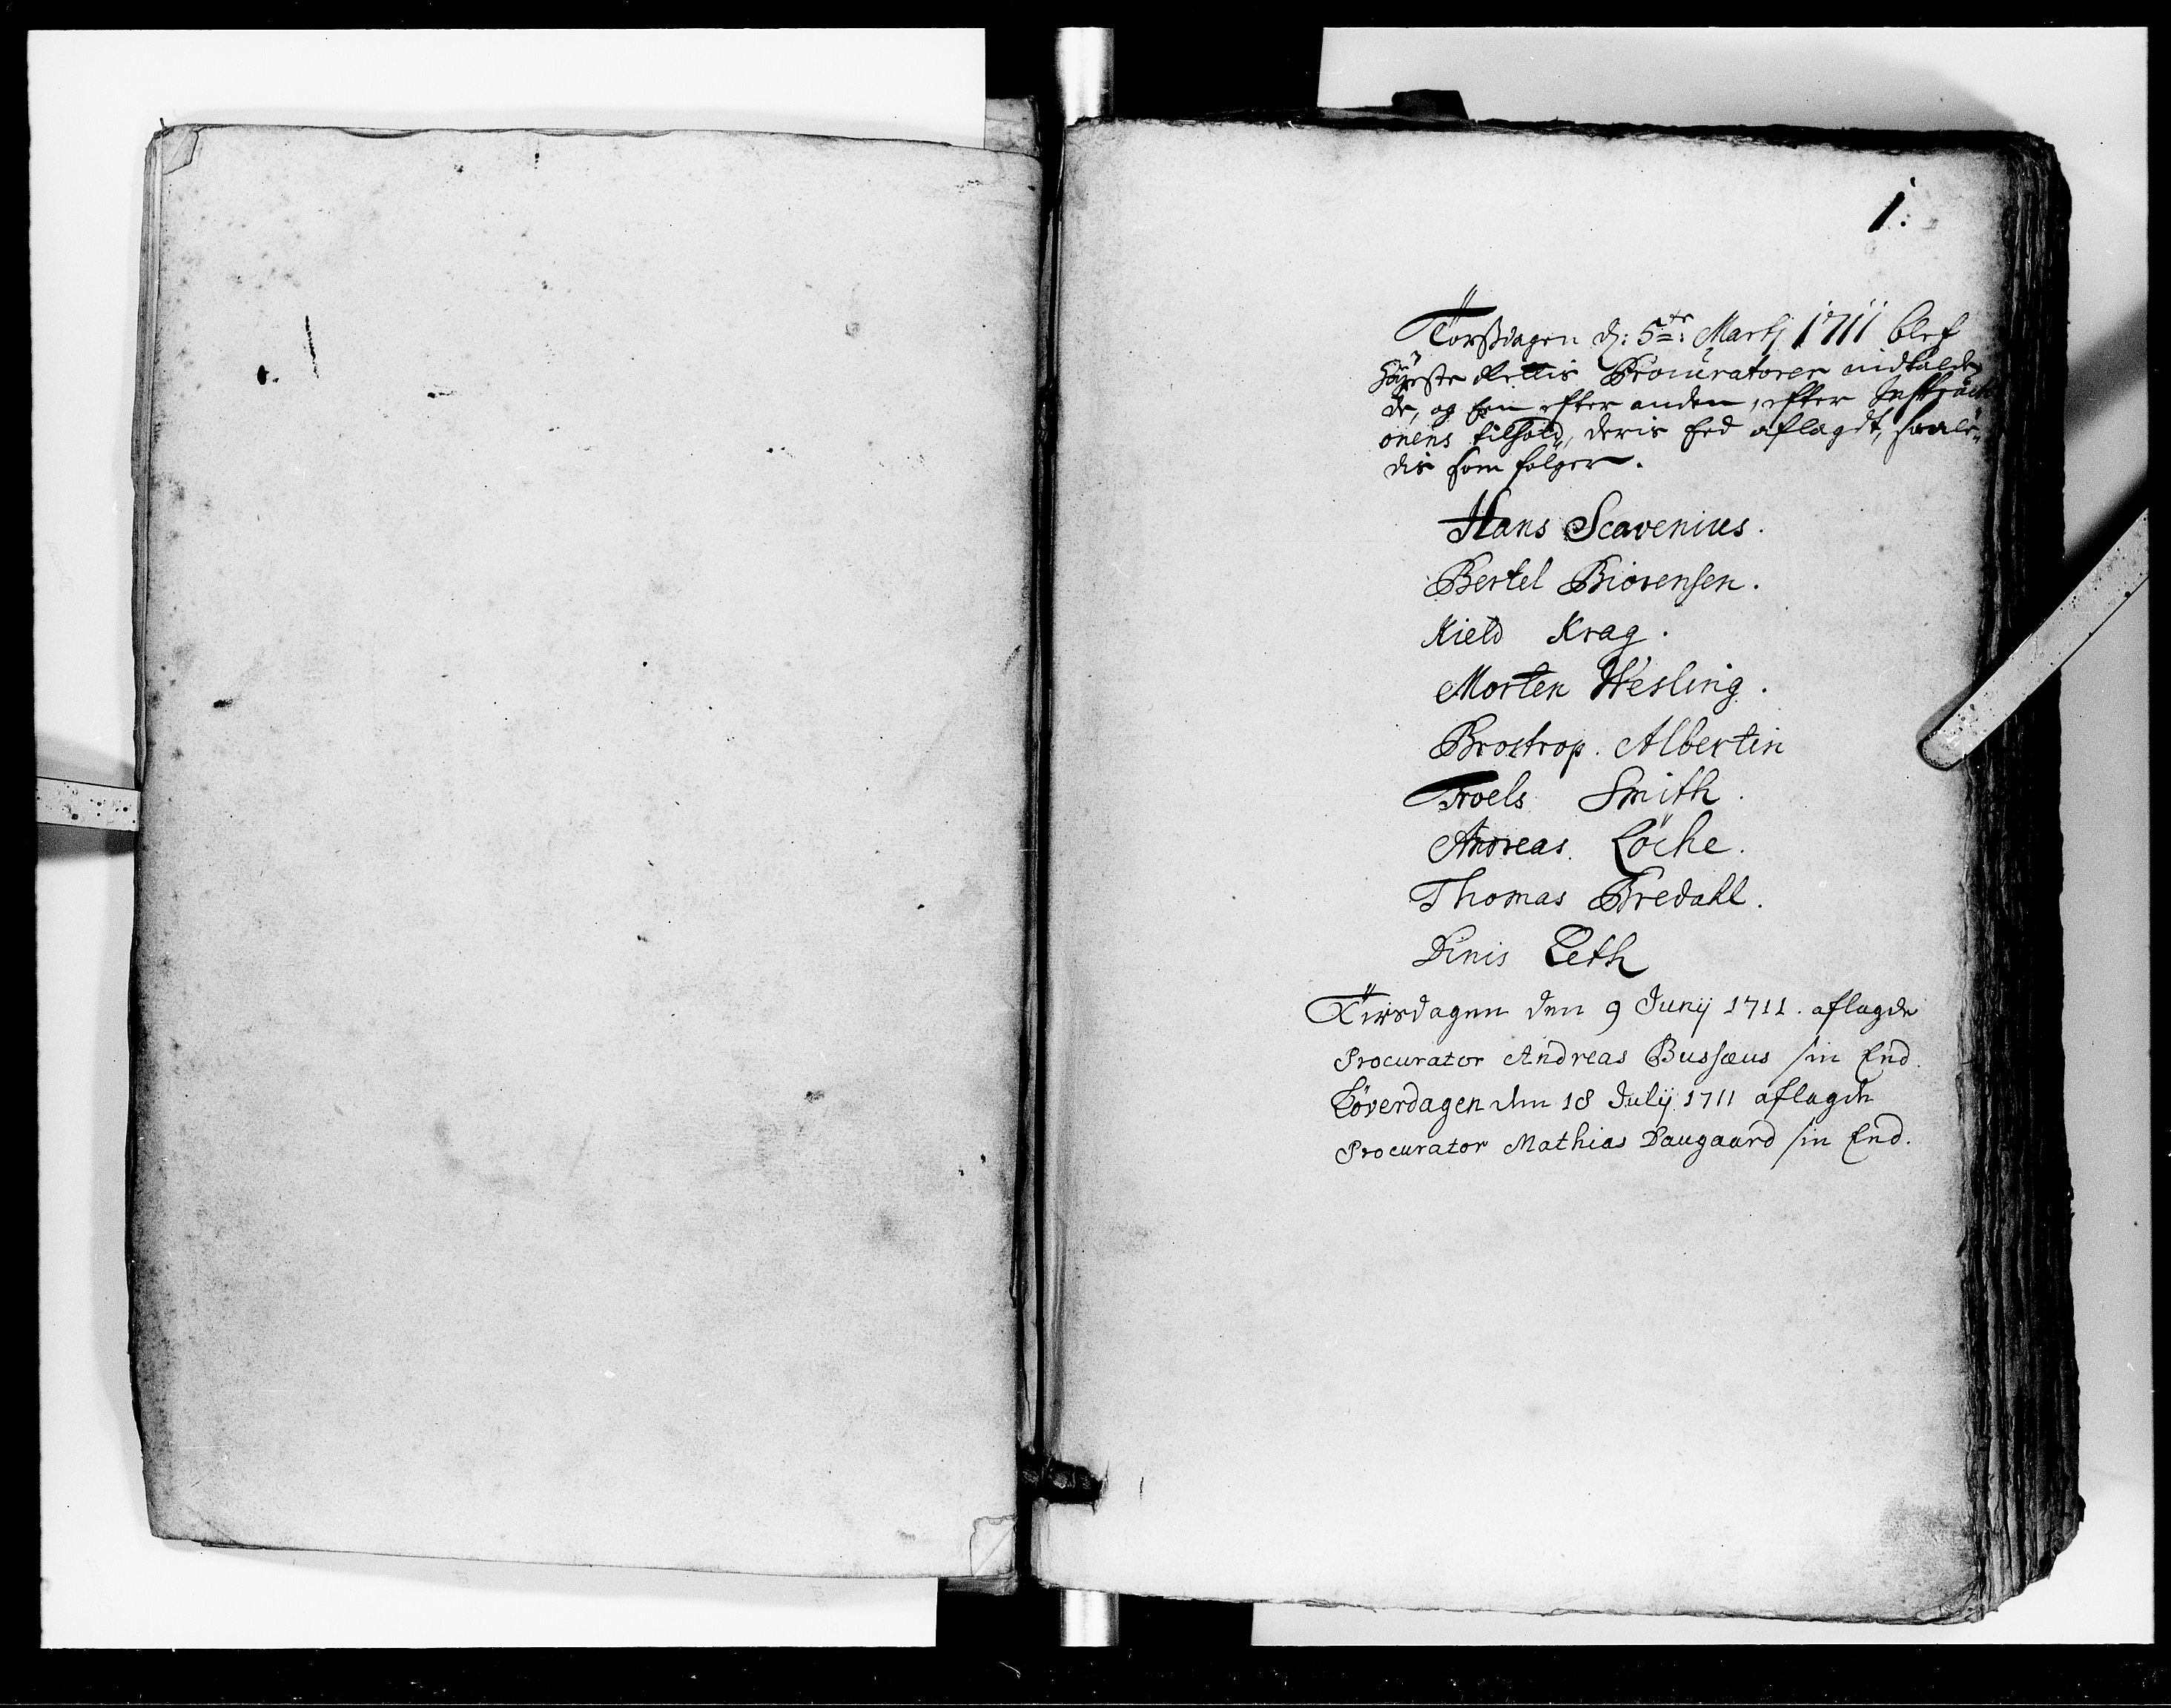 1.
Torßdagen d: 5te: Martj 1711 blef
Höyeste Rettis Procuratorer indkaldes
de, og Een efter anden, efter Instructi
onens tilhold, deris Eed aflagdt, saale„
dis som folger.
Hans Scavenius.
Bertel Biorensen.
Kield Krag.
Morten Wesling.
Brostrop. Albertin
Troels Smith.
Andreas. Löche.
Thomas Bredahl.
Dinis Leth
Tirsdagen den 9 Junij 1711. aflagde
Procurator Andreas Bussæus sin Eed.
Löverdagen den 18 Julij 1711 aflagde
Procurator Mathias Daugaard sin Eed.